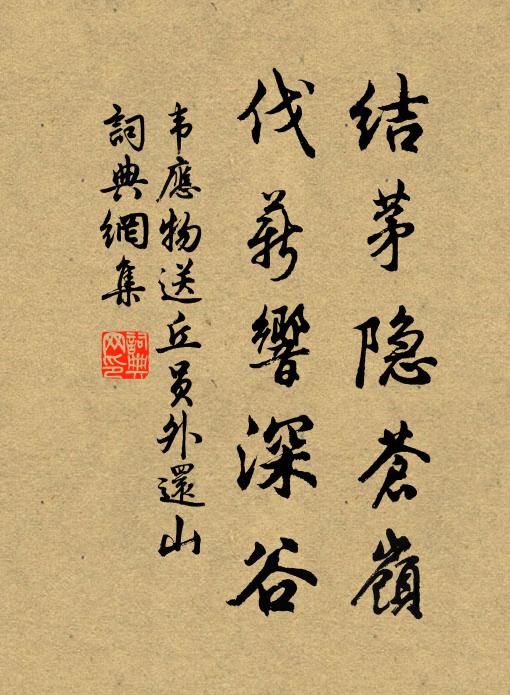 结茅隐苍嶺
伐薪響深谷
韦應物送丘员外還山
詞典網集
詞典网印